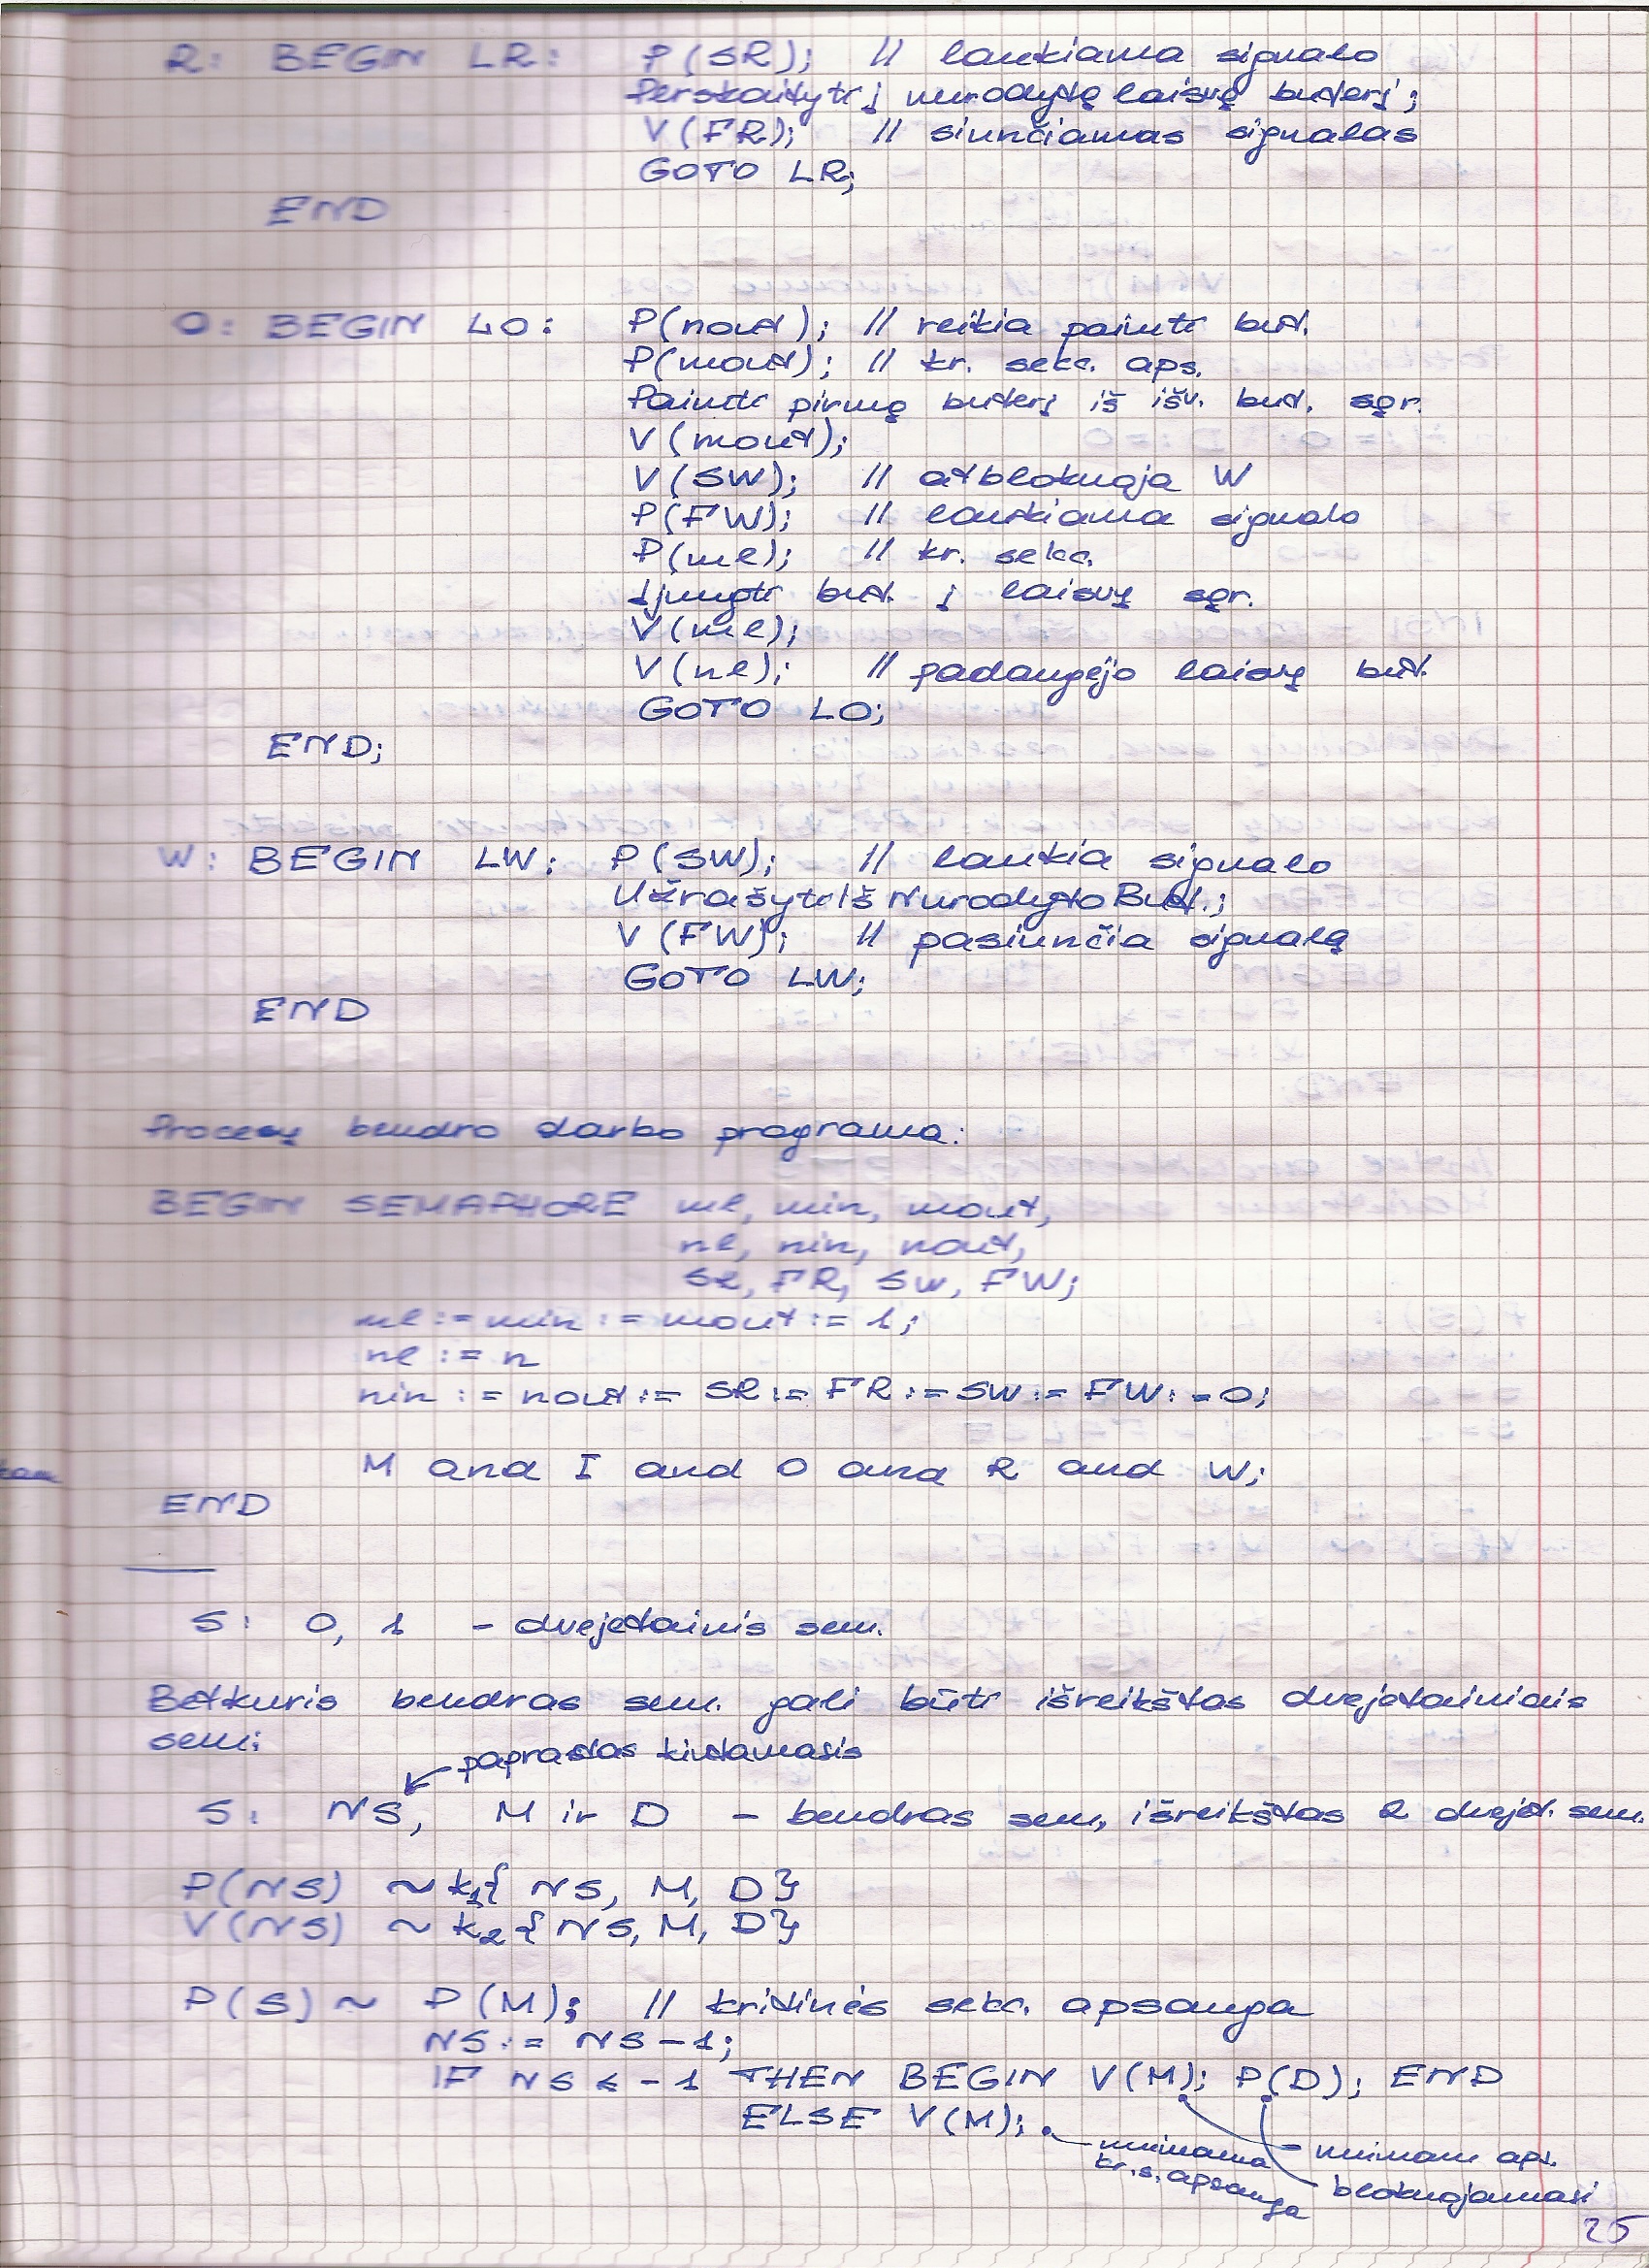 R: BEGIN LR: P(SR); // laukiama signalo
Perskaityti į nurodytą laisvą buferį;
V(FR); // siunčiamas signalas
GOTO LR;
END
O: BEGIN LO: P(nout); // reikia paimti buf.
P(mout); // kr. sekc. aps.
Paimti pirmą buferį iš išv. buf. sąr.
V(mout);
V(SW); // atblokuoja W
P(FW); // laukiama signalo
P(ml); // kr. sekc.
Įjungti buf. į laisvų sąr.
V(ml);
V(nl); // padaugėjo laisvų buf.
GOTO LO;
END;
W: BEGIN LW: P(SW); // laukia signalo
UžrašytiIšNurodytoBuf.;
V(FW); // pasiunčia signalą
GOTO LW;
END
Procesų bendro darbo programa:
BEGIN SEMAPHORE ml, min, mout,
nl, nin, nout,
SR, FR, SW, FW;
ml := min := mout := 1;
nl := n
nin := nout := SR := FR := SW := FW := 0;
M and I and O and R and W;
END
S: 0, 1 - dvejetainis sem.
Betkuris bendras sem. gali būti išreikštas dvejetainiais
sem:
paprastas kintamasis
S: NS, M ir D - bendras sem, išreikštas 2 dvejet. sem.
P(NS) ~ k1{ NS, M, D}
V(NS) ~ k2{ NS, M, D}
P(S) ~ P(M); // kritinės sekc. apsauga
NS := NS - 1;
IF NS ≤ -1 THEN BEGIN V(M); P(D); END
ELSE V(M);
nuimama
kr. s. apsauga
- nuimam aps.
blokuojamasi
25